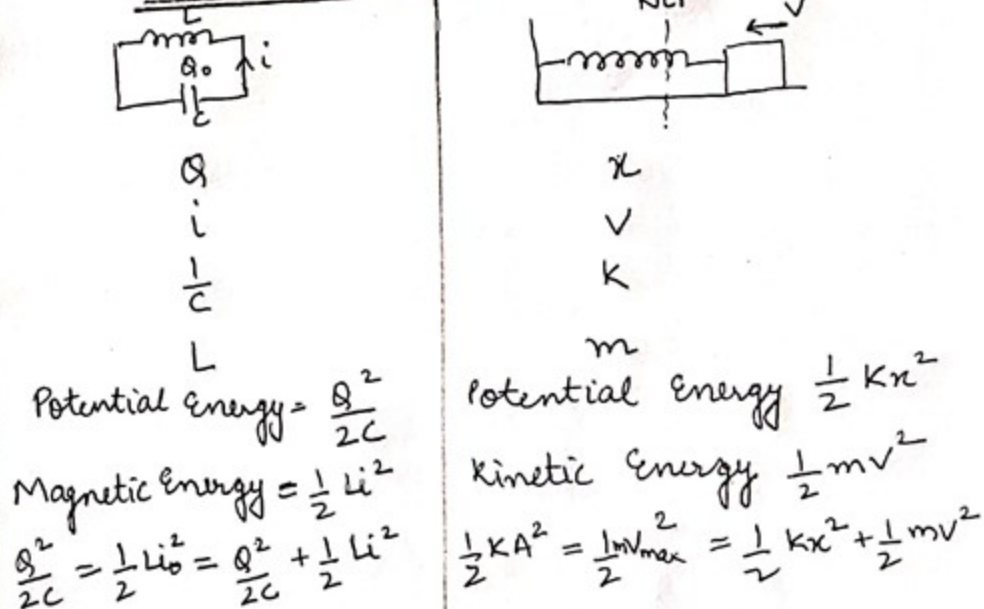 L
Q₀ i
C
V
Q
i
1/C
L
Potential Energy = Q²/2C
Magnetic Energy = 1/2 Li²
Q²/2C = 1/2 Li₀² = Q²/2C + 1/2 Li²
x
V
K
m
Potential Energy 1/2 Kx²
Kinetic Energy 1/2 mv²
1/2 KA² = 1/2 mVmax² = 1/2 Kx² + 1/2 mv²